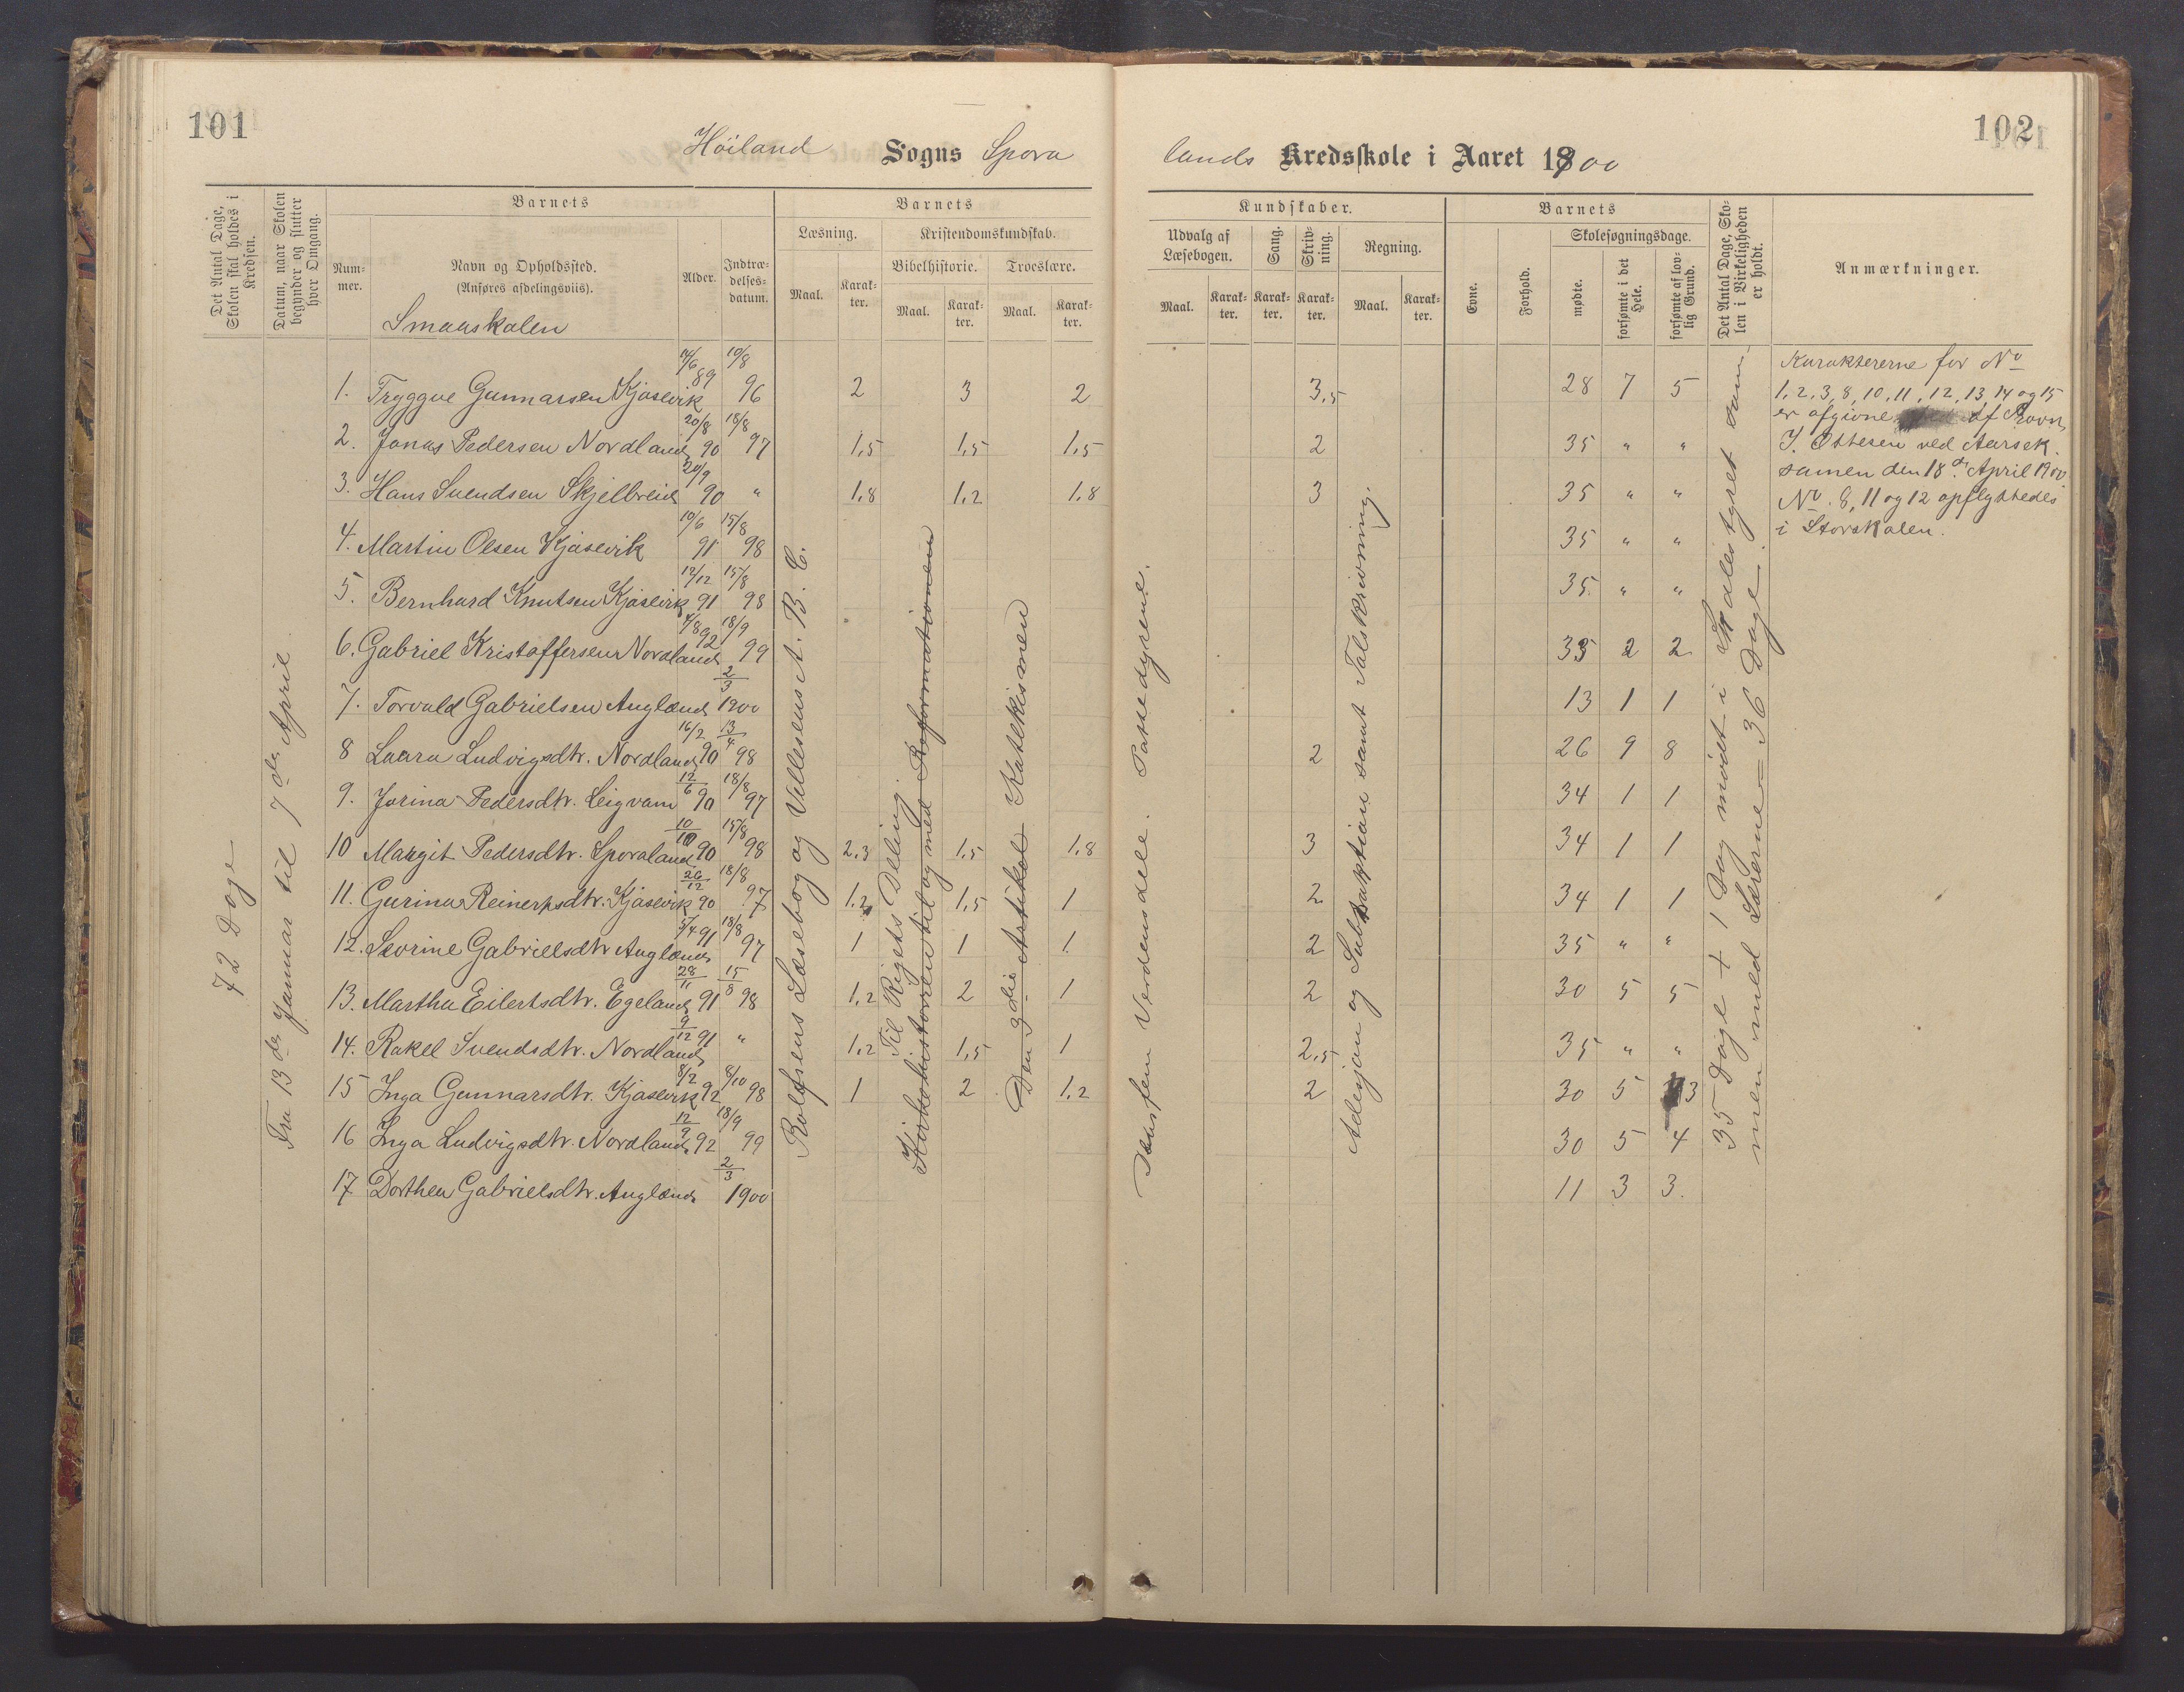 101
Höiland Sogns Spora
Det Antal Dage, Skolen skal holdes i Kredsen.
Datum, naar Skolen begynder og slutter hver Omgang.
Barnets
Num-
mer.
Navn og Opholdssted.
(Anføres afdelingsviis).
Alder.
Indtræ-
delses-
datum.
Smaaskolen
Barnets
Læsning.
Kristendomskundskab.
Bibelhistorie.
Troeslære.
Maal.
Karak-
ter.
Maal.
Karak-
ter.
Maal.
Karak-
ter.
72 Dage
Fra 13de Januar til 7de April.
1. Tryggve Gunnarsen Kjosevik 14/6 89 10/8 96 2 3 2
2. Jonas Pedersen Nordland 20/8 90 18/8 97 1,5 1,5 1,5
3. Hans Svendsen Skjelbreid 20/9 90 " 1,8 1,2 1,8
4. Martin Olsen Kjosevik 10/6 91 15/8 98
5. Bernhard Knutsen Kjosevik 12/12 91 15/8 98
6. Gabriel Kristoffersen Nordland 4/8 92 18/9 99
7. Torvald Gabrielsen Augland 2/3 1900
8 Laura Ludvigsdtr. Nordland 16/2 90 13/4 98
9. Jorina Pedersdtr. Leigvam 12/6 90 18/8 97
10 Margit Pedersdtr. Sporaland 10/10 90 15/8 98 2,3 1,5 1,8
11. Gurina Reinertsdtr. Kjosevik 26/12 90 18/8 97 1,2 1,5 1
12. Severine Gabrielsdtr Augland 5/4 91 18/8 97 1 1 1
13. Martha Eilertsdtr. Egeland 28/11 91 15/8 98 1,2 2 1
14. Rakel Svendsdtr. Nordland 9/12 91 " 1,2 1,5 1
15 Inga Gunnarsdtr. Kjosevik 8/2 92 8/10 98 1 2 1,2
16 Inga Ludvigsdtr. Nordland 12/9 92 18/9 99
17 Dorthea Gabrielsdtr. Augland 2/3 1900
Rolfsens Læsebog og Villesens A. B. C.
Til Rigets Deling
Kirkehistorien til og med Reformationen
Den 3die Artikel Katekismen
102
lands Kredsskole i Aaret 1900
Kundskaber.
Udvalg af
Læsebogen.
Sang.
Skriv-
ning.
Regning.
Maal.
Karak-
ter.
Karak-
ter.
Karak-
ter.
Maal.
Karak-
ter.
Barnets
Evne.
Forhold.
Skolesøgningsdage.
mødte.
forsømte i det Hele.
forsømte af lov-
lig Grund.
Det Antal Dage, Sko-
len i Virkeligheden
er holdt.
Anmærkninger.
3,5 28 7 5
2 35 " "
3 35 " "
35 " "
35. " "
33 2 2
13 1 1
2 26 9 8
34 1 1
3 34 1 1
2 34 1 1
2 35 " "
2 30 5 5
2,5 35 " "
2 30 5 3
30 5 4
11 3 3.
fem Verdensdele. Pattedyrene.
Adisjon og Subtraktion samt Talskrivning.
35 Dage + 1 Dag mødt i Skolestyret sam-
men med Lærerne = 36 Dage.
Karaktererne for No
1, 2, 3, 8, 10, 11, 12, 13, 14 og 15
er afgivne af Provn
J. Ottesen ved Aarsek-
samen den 18de April 1900
No. 8, 11 og 12 opflyttedes
i Storskolen.